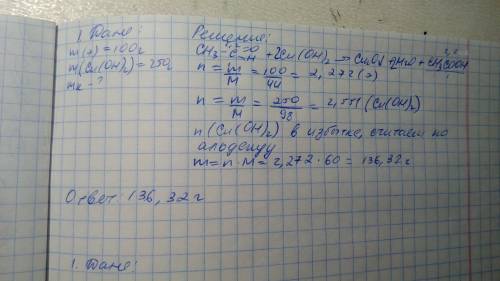 1. Дано:
m(э) = 100г
m(Cu(OH)₂) = 250г
mк - ?
Решение:
CH₃-C=O-H + 2Cu(OH)₂ → + 2H₂O + CH₃COOH
n = m/M = 100/44 = 2,272 (э)
n = m/M = 250/98 = 2,551 (Cu(OH)₂)
n(Cu(OH)₂) в избытке, считаем по
альдегиду
m = n · M = 2,272 · 60 = 136,32 г
Ответ: 136,32 г
1. Дано: